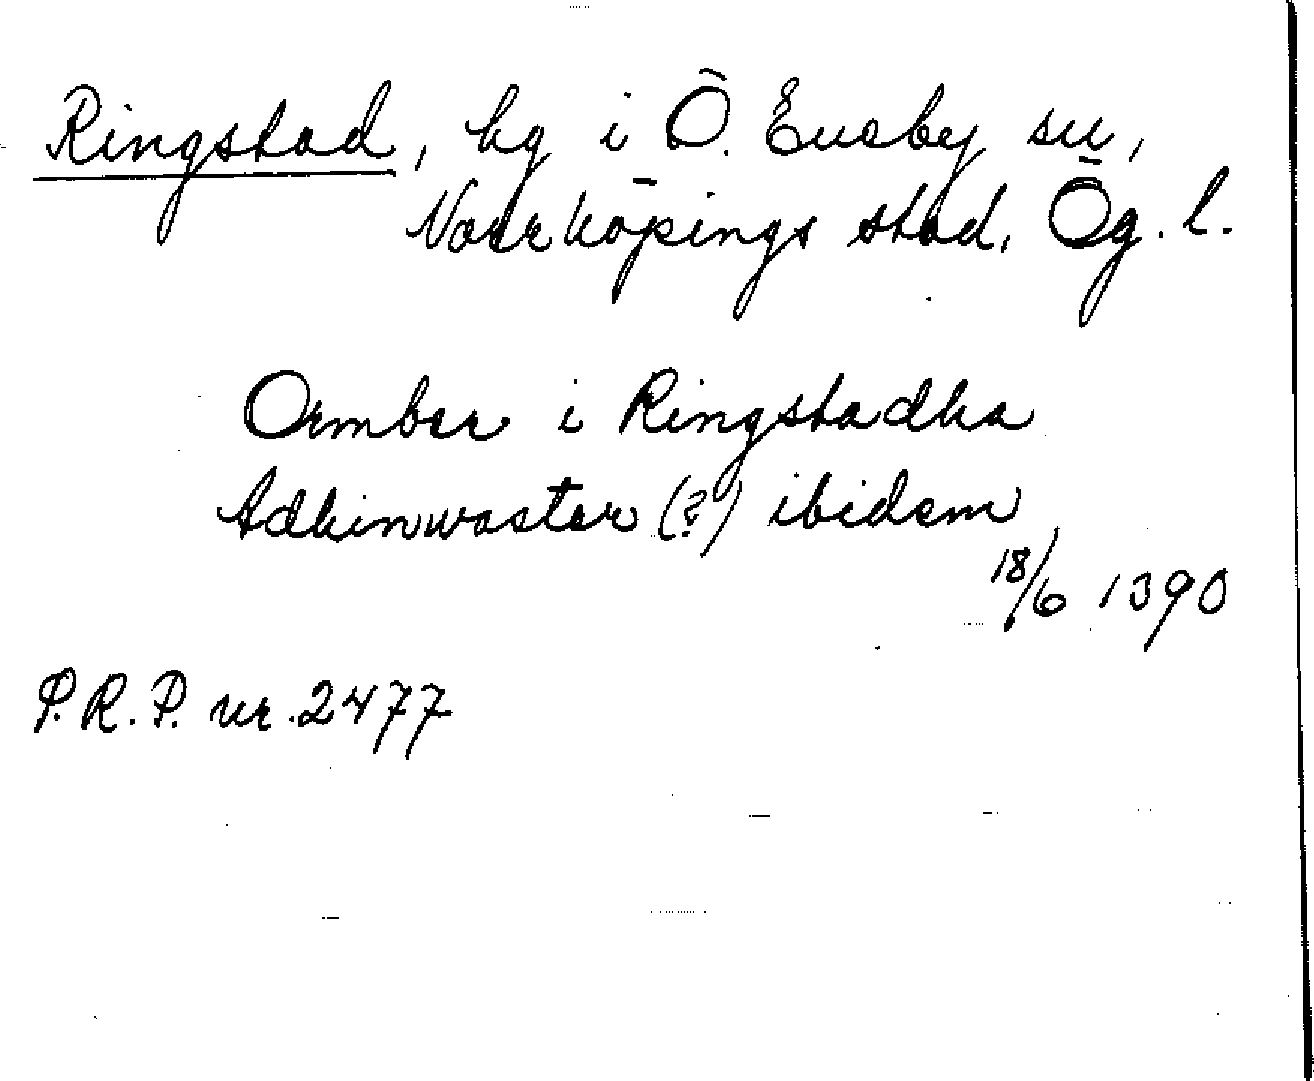 Ringstad, by i Ö. Eneby sn,
Norrköpings stad, Ög. l.
Ormber i Ringstadha
Adhinwaster (?) ibidem
18/6 1390
P.R.P. nr. 2477